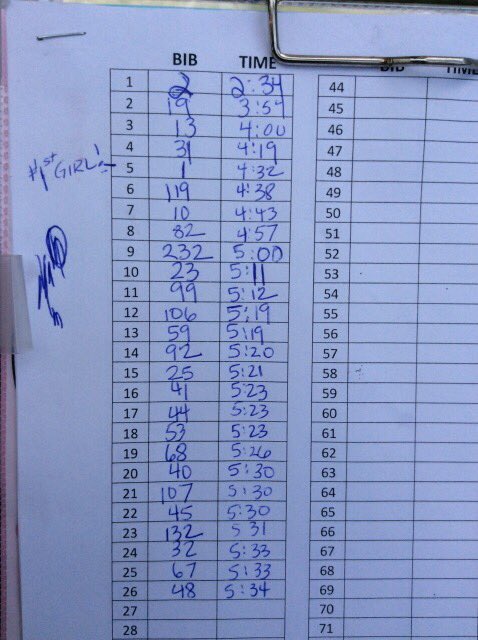 BIB TIME BIB TIME
1 2 2:34 44
2 19 3:57 45
3 13 4:00 46
4 31 4:19 47
#1st GIRL! 5 1 4:32 48
6 119 4:38 49
7 10 4:43 50
8 82 4:57 51
9 232 5:00 52
10 23 5:11 53
11 99 5:12 54
12 106 5:19 55
13 59 5:19 56
14 92 5:20 57
15 25 5:21 58
16 41 5:23 59
17 44 5:23 60
18 53 5:23 61
19 68 5:26 62
20 40 5:30 63
21 107 5:30 64
22 45 5:30 65
23 132 5 31 66
24 32 5:33 67
25 67 5:33 68
26 48 5:34 69
27 70
28 71